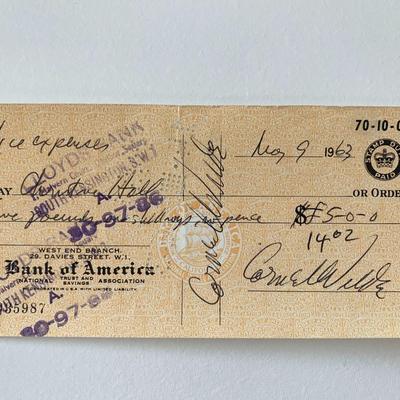 ice expenses
LLOYDS BANK
SOUTH KENSINGTON, S.W.1
A.
30-97-86
70-10-0
May 9 1963
STAMP DUTY
PAID
AY Christine Hill OR ORDE
five pounds no shillings no pence $£5-0-0
1402
WEST END BRANCH.
29, DAVIES STREET, W.1.
Bank of America
NATIONAL TRUST AND SAVINGS ASSOCIATION
INCORPORATED IN U.S.A. WITH LIMITED LIABILITY.
Cornel Wilde
Cornel Wilde
35987
A.
30-97-8